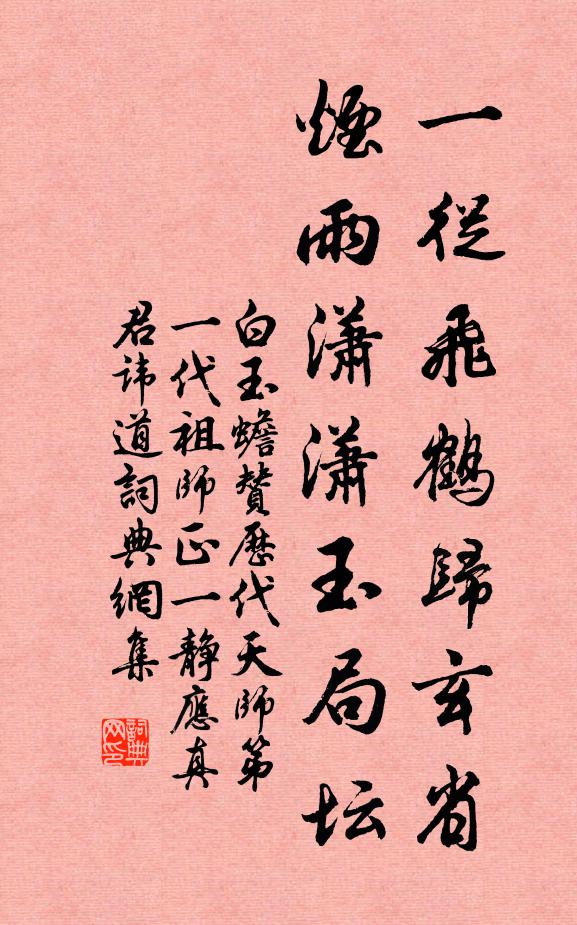 一從飛鶴歸玄省
煙雨瀟瀟玉局坛
白玉蟾贊歷代天師第
一代祖師正一靜應真
君諱道詞典網集
詞典网印